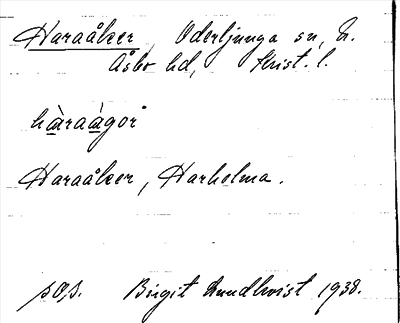 Haraåker Oderljunga sn, N.
Åsbo hd, Krist. l.
hàraàgor
Haraåker, Harholma.
Birgit Lundkvist 1938.